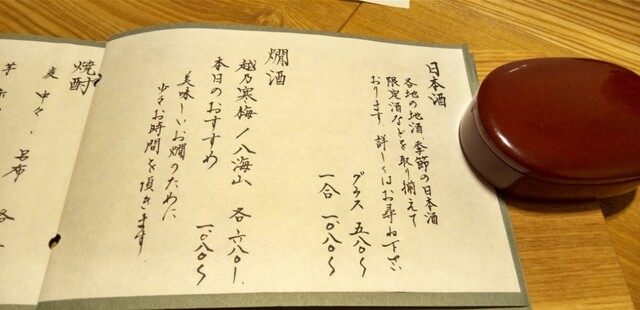 日本酒
各地の地酒、季節の日本酒
限定酒などを取り揃えて
おります。詳しくはお尋ね下さい
グラス 五八〇〜
一合 一〇八〇〜
燗酒
越乃寒梅/八海山 各六八〇〜
本日のおすすめ 一〇八〇〜
美味しいお燗のために
少々お時間を頂きます
焼酎
麦 中々、呂布 各一
芋